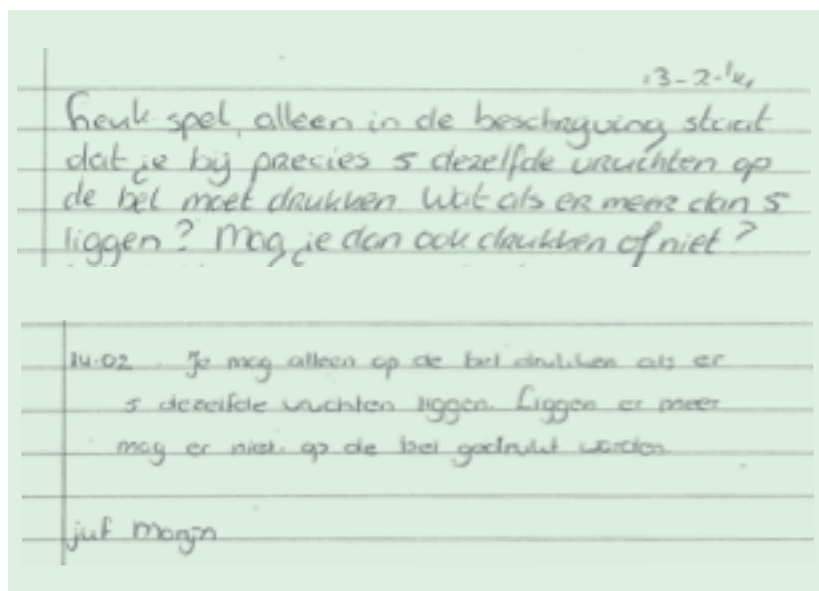 13-2-'14
Leuk spel, alleen in de beschrijving staat
dat je bij precies 5 dezelfde vruchten op
de bel moet drukken. Wat als er meer dan 5
liggen? Mag je dan ook drukken of niet?
14-02 Je mag alleen op de bel drukken als er
5 dezelfde vruchten liggen. Liggen er meer
mag er niet op de bel gedrukt worden
juf